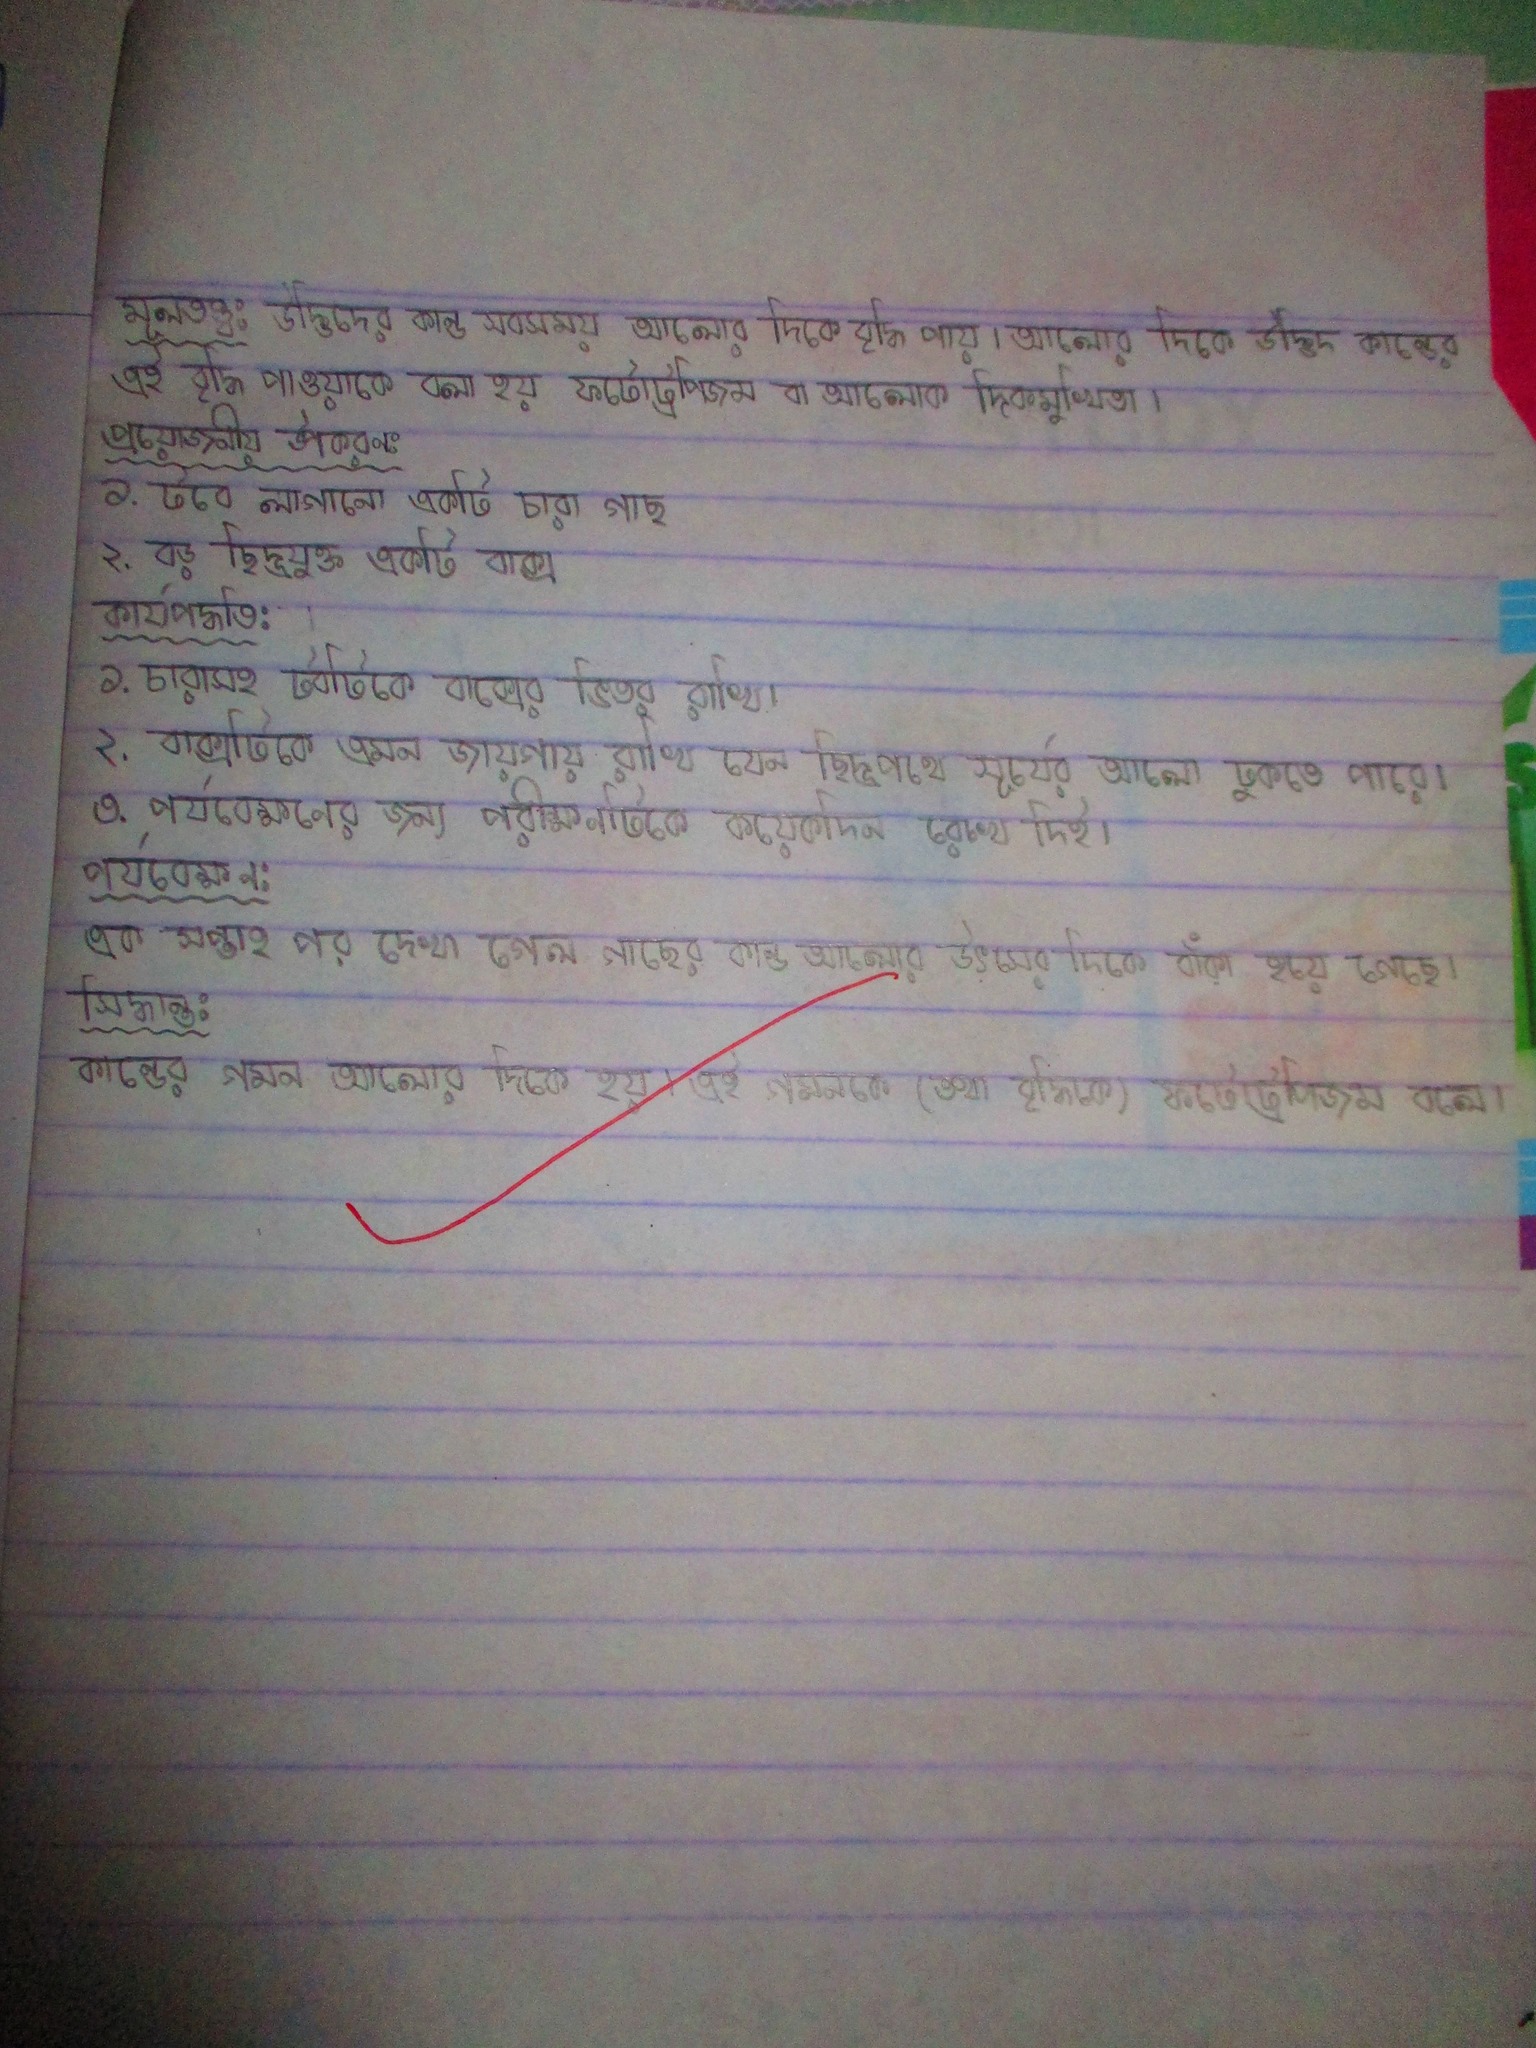 মূলতত্ত্ব: উদ্ভিদের কান্ড সবসময় আলোর দিকে বৃদ্ধি পায়। আলোর দিকে উদ্ভিদ কান্ডের
এই বৃদ্ধি পাওয়াকে বলা হয় ফটোট্রপিজম বা আলোক দিকমুখিতা।
প্রয়োজনীয় উপকরন:
১. টবে লাগানো একটি চারা গাছ
২. বড় ছিদ্রযুক্ত একটি বাক্স
কার্যপদ্ধতি:
১. চারাসহ টবটিকে বাক্সের ভিতর রাখি।
২. বাক্সটিকে এমন জায়গায় রাখি যেন ছিদ্রপথে সূর্যের আলো ঢুকতে পারে।
৩. পর্যবেক্ষণের জন্য পরীক্ষণটিকে কয়েকদিন রেখে দিই।
পর্যবেক্ষণ:
এক সপ্তাহ পর দেখা গেল গাছের কান্ড আলোর উৎসের দিকে বাঁকা হয়ে গেছে।
সিদ্ধান্ত:
কান্ডের গমন আলোর দিকে হয়। এই গমনকে (তথা বৃদ্ধিকে) ফটোট্রপিজম বলে।